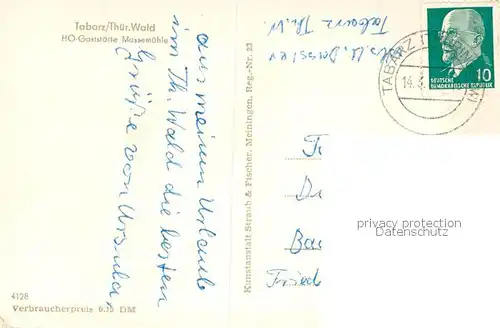 Tabarz/Thür. Wald
HO-Gaststätte Massemühle
aus meinem Urlaub
im Th. Wald die besten
Grüße von Ursula,
4128
Verbraucherpreis 0,15 DM
Kunstanstalt Straub & Fischer, Meiningen, Reg.-Nr. 23
Tabarz Th. W.
TABARZ
14.
DEUTSCHE
DEMOKRATISCHE REPUBLIK
10
Fried
privacy protection
Datenschutz